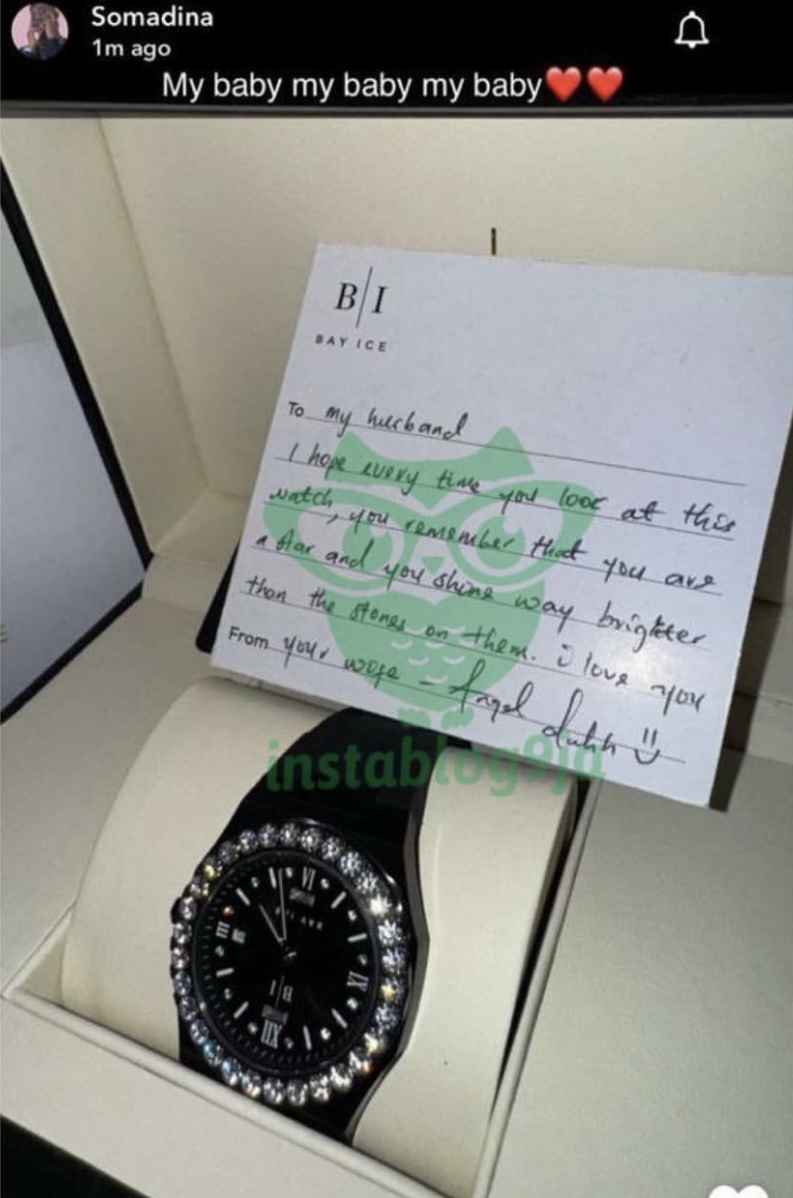 Somadina
1m ago
My baby my baby my baby❤️❤️
B|I
BAY ICE
To my husband
I hope every time you look at this
watch, you remember that you are
a star and you shine way brighter
than the stones on them. i love you
From your wife - Angel
instablog9ja
VI
III
IX
B|I
XII